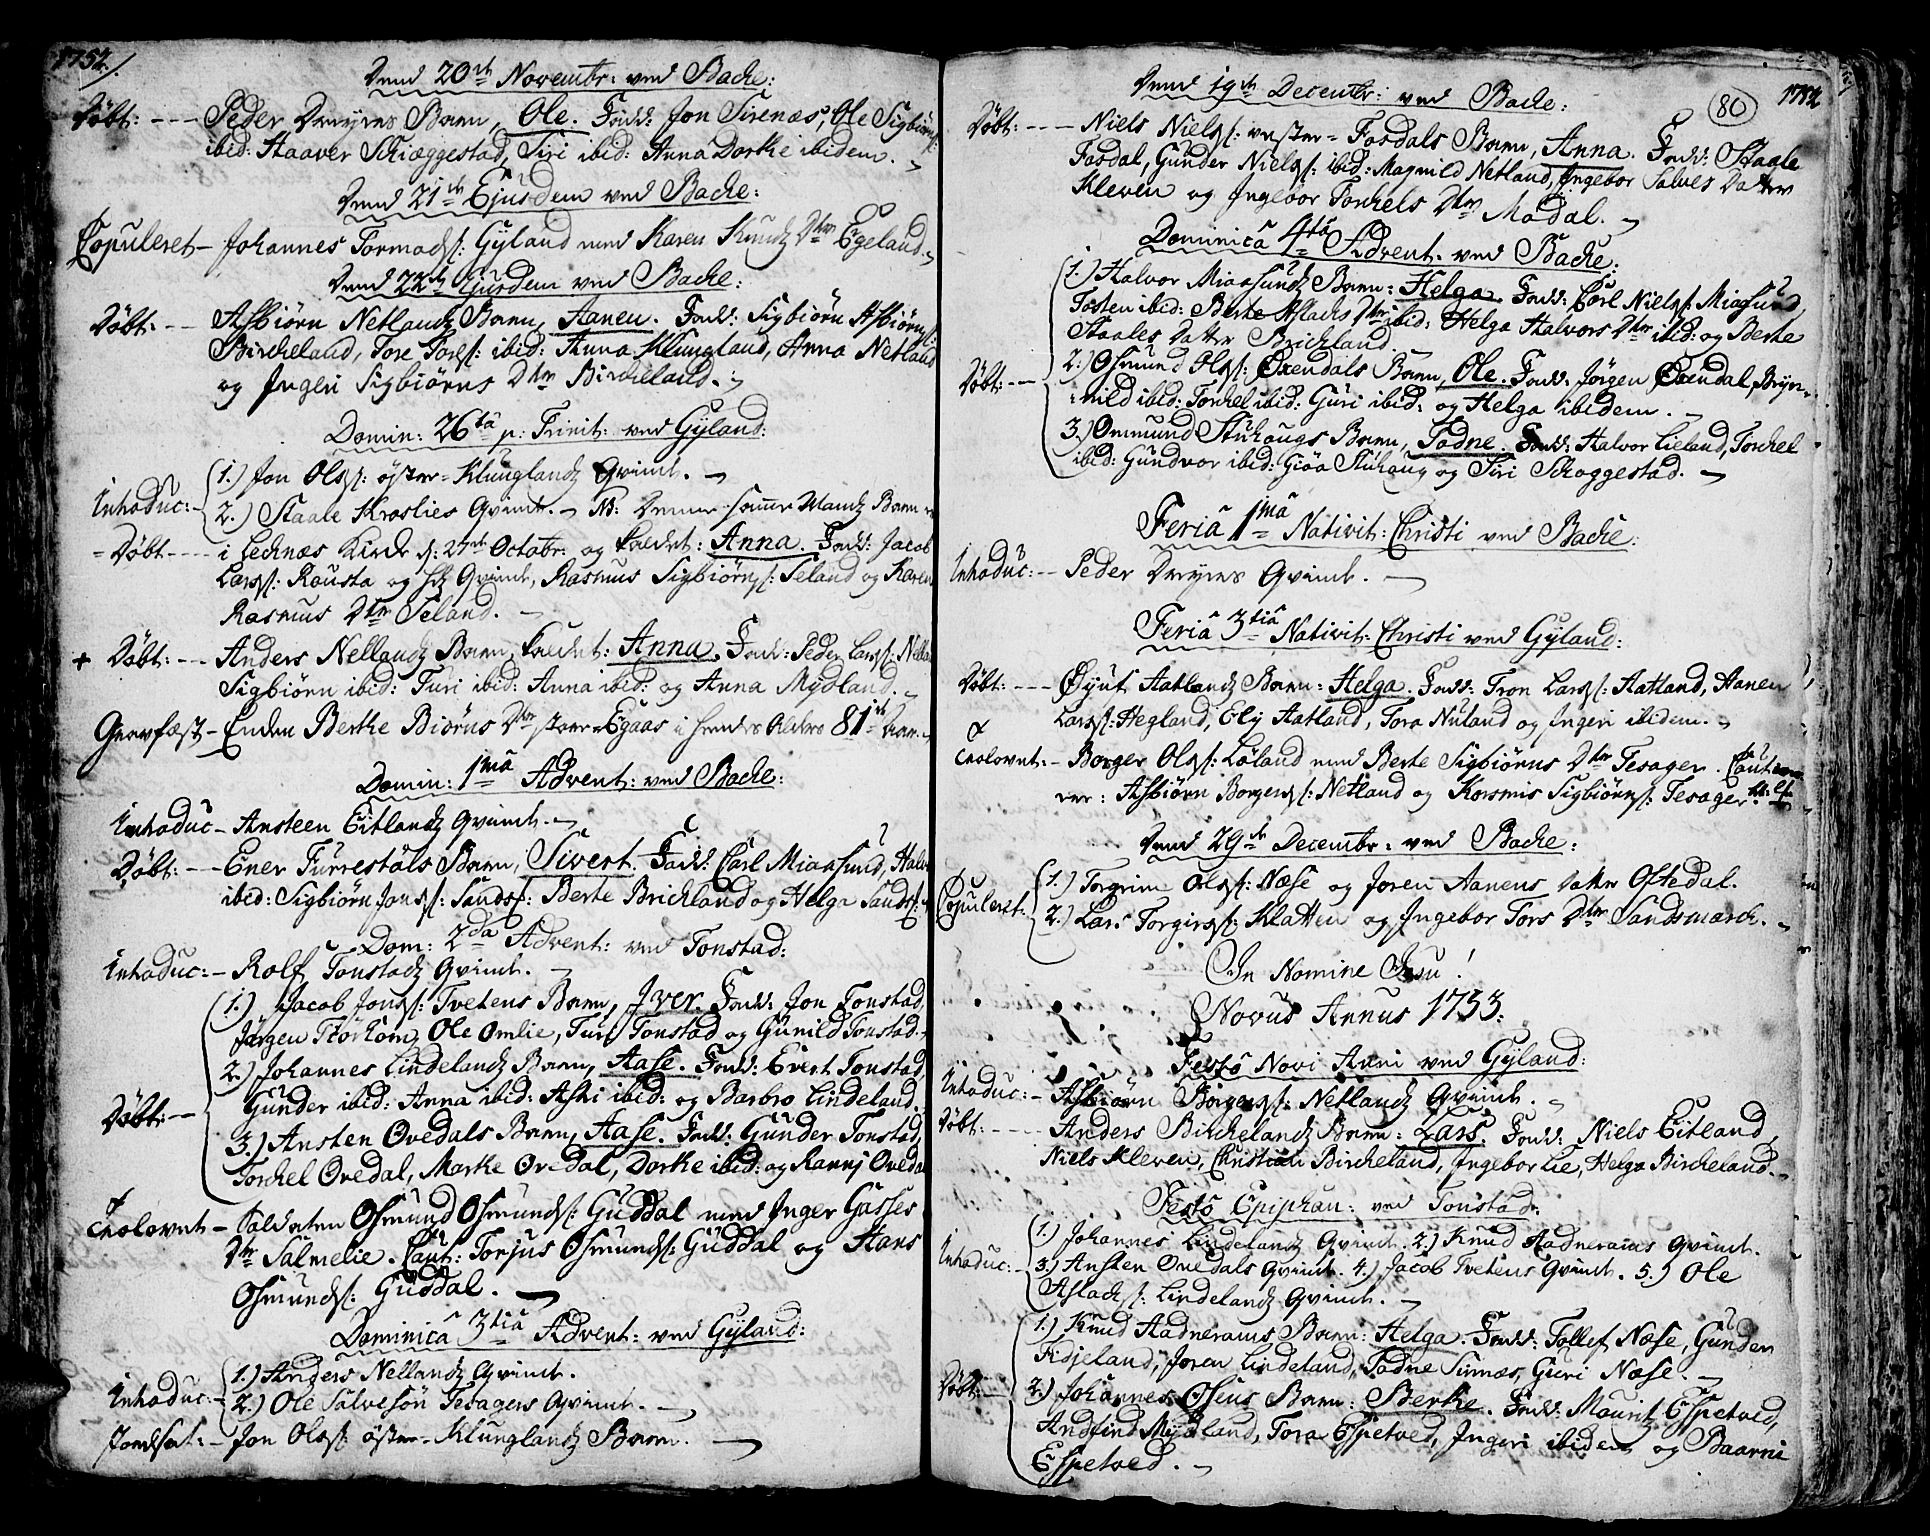 1752.
Dend 20de Novembr: ved Bache:
Døbt: --- Peder Dreyers Barn, Ole. Fadd: Jon Sirenæs, Ole Sigbiørns:
ibid: Staaver Schiæggestad, Siri ibid: Anna Dorthe ibidem.
Dend 21de Ejusdem ved Bache:
Copuleret - Johannes Tormods: Gyland med Karen Knudz Dttr Egeland.
Dend 22de Ejusdem ved Bache:
Døbt: -- Asbiørn Netlandz Barn, Aanen. Fadd: Sigbiørn Asbiørns:
Bircheland, Tore Tors: ibid: Anna Klungland, Anna Netland
og Ingeri Sigbiørns Dttr Bircheland.
Domin: 26ta p: Trinit: ved Gyland:
1.) Jon Ols: øster-Klunglandz Qvinde.
Introduc: - 2.) Staale Kroslies Qvinde. NB: Denne samme Mandz Barn er
= Døbt --- i Lechnæs Kirche d: 27de Octobr: og kaldet: Anna. Fadd: Jacob
Lars: Rousta og hs Qvinde, Rasmus Sigbiørns: Seland og Karen
Rasmus Dttr Seland.
+ Døbt: --- Anders Nellandz Barn, kaldet: Anna. Fadd: Peder Lars: Nelland
Sigbiørn ibid: Turi ibid: Anna ibid: og Anna Mydland.
Gravfæst - Enchen Berthe Biørns Dttr store-Egaas i hendes Alders 81de Aar.
Domin: 1ma Advent: ved Bache:
Introduc - Ansteen Eitlandz Qvinde.
Døbt: --- Ener Furrestøls Barn, Sivert. Fadd: Carl Miaasund, Halv
ibid: Sigbiørn Jons: Sands: Berte Brichland og Helga Sands:
Dom: 2da Advent: ved Tonstad:
Introduc: - Rolf Tonstadz Qvinde.
1.) Jacob Jons: Tvetens Barn, Iver. Fadd: Jon Tonstad,
Jørgen Storkom, Ole Omlie, Turi Tonstad og Gunild Tonstad.
2.) Johannes Lindelandz Barn, Aase. Fadd: Evert Tonstad,
Gunder ibid: Anna ibid: Aski ibid: og Barbro Lindeland.
Døbt: -- 3.) Ansten Ovedals Barn, Aase. Fadd: Gunder Tonstad,
Torchel Ovedal, Marthe Ovedal, Dorthe ibid: og Ranni Ovedal
Trolovet - Soldaten Osmund Osmunds: Guddal med Inger Gasses
Dttr Salmelie. Caut: Torjus Osmunds: Guddal og Hans
Osmunds: Guddal.
Dominica 3tia Advent: ved Gyland:
1.) Anders Nellandz Qvinde.
Introduc: - 2.) Ole Salvesøn Tesagers Qvinde.
Jordfæt: - Jon Ols: øster-Klunglandz Barn.
80 1752
Dend 19de Decembr: ved Bache:
Døbt: --- Niels Niels: vester-Fosdals Barn, Anna. Fadd: Staale
Fosdal, Gunder Niels: ibid: Magnild Netland, Ingebor Salves Datter
Kleven og Ingebor Torchels Dttr Modal.
Dominica 4ta Advent: ved Bache:
1.) Halvor Miaasundz Barn: Helga. Fadd: Carl Niels: Miaasund,
Tosten ibid: Berthe Aslachs Dttr ibid: Helga Halvors Dttr ibid: og Berthe
Staales Datter Brichland.
Døbt: -- 2.) Osmund Ols: Øxendals Barn, Ole. Fadd: Jørgen Øxendal, Bryn-
ild ibid: Torchel ibid: Guri ibid: og Helga ibidem.
3.) Ommund Stuhougs Barn, Tadne. Fadd: Halvor Lieland, Torchel
ibid: Gundvor ibid: Giøa Stuhaug og Siri Schoggestad.
Feria 1ma Nativit: Christi ved Bache:
Introduc: - Peder Dreyers Qvinde.
Feria 3tia Nativit: Christi ved Gyland:
Døbt: --- Øyut Aatlandz Barn: Helga. Fadd: Tron Lars: Aatland, Aanen
Lars: Hegland, Elj Aatland, Tora Nuland og Ingeri ibidem.
Trolovet: - Borger Ols: Løland med Berte Sigbiørns Dttr Tesager. Caution-
rer: Asbiørn Borgers: Netland og Kosmis Sigbiørns: Tesager.
Dend 29de Decembr: ved Bache:
Copuleret: 1.) Torgrim Ols: Næse og Joren Aanens Datter Oftedal.
2.) Lars Torgirs: Klatten og Ingebor Tors Dttr Sandsmarch.
In Nomine Jesu!
Novus Annus 1753.
Festo Novi Anni ved Gyland:
Introduc: - Asbiørn Borgers: Netlandz Qvinde.
Døbt: --- Anders Birchelandz Barn: Lars. Fadd: Niels Eitland,
Niels Kleven, Christian Bircheland, Ingebor Lie, Helga Bircheland.
Festo Epiphan: ved Tonstad:
1.) Johannes Lindelandz Qvinde. 2.) Knud Aadnerams Qvinde.
Introduc: - 3.) Ansten Ovedals Qvinde. 4.) Jacob Tvetens Qvinde. 5.) Ole
Aslach s: Lindelandz Qvinde.
1.) Knud Aadnerams Barn: Helga. Fadd: Tollef Næse, Gunder
Fidjeland, Joren Lindeland, Tadne Sinnæs, Guri Næse.
Døbt: - 2.) Johannes Osens Barn: Berthe. Fadd: Mouritz Espetved,
Andfind Mydland, Tora Espetved, Ingeri ibidem og Baarni
Espetved.